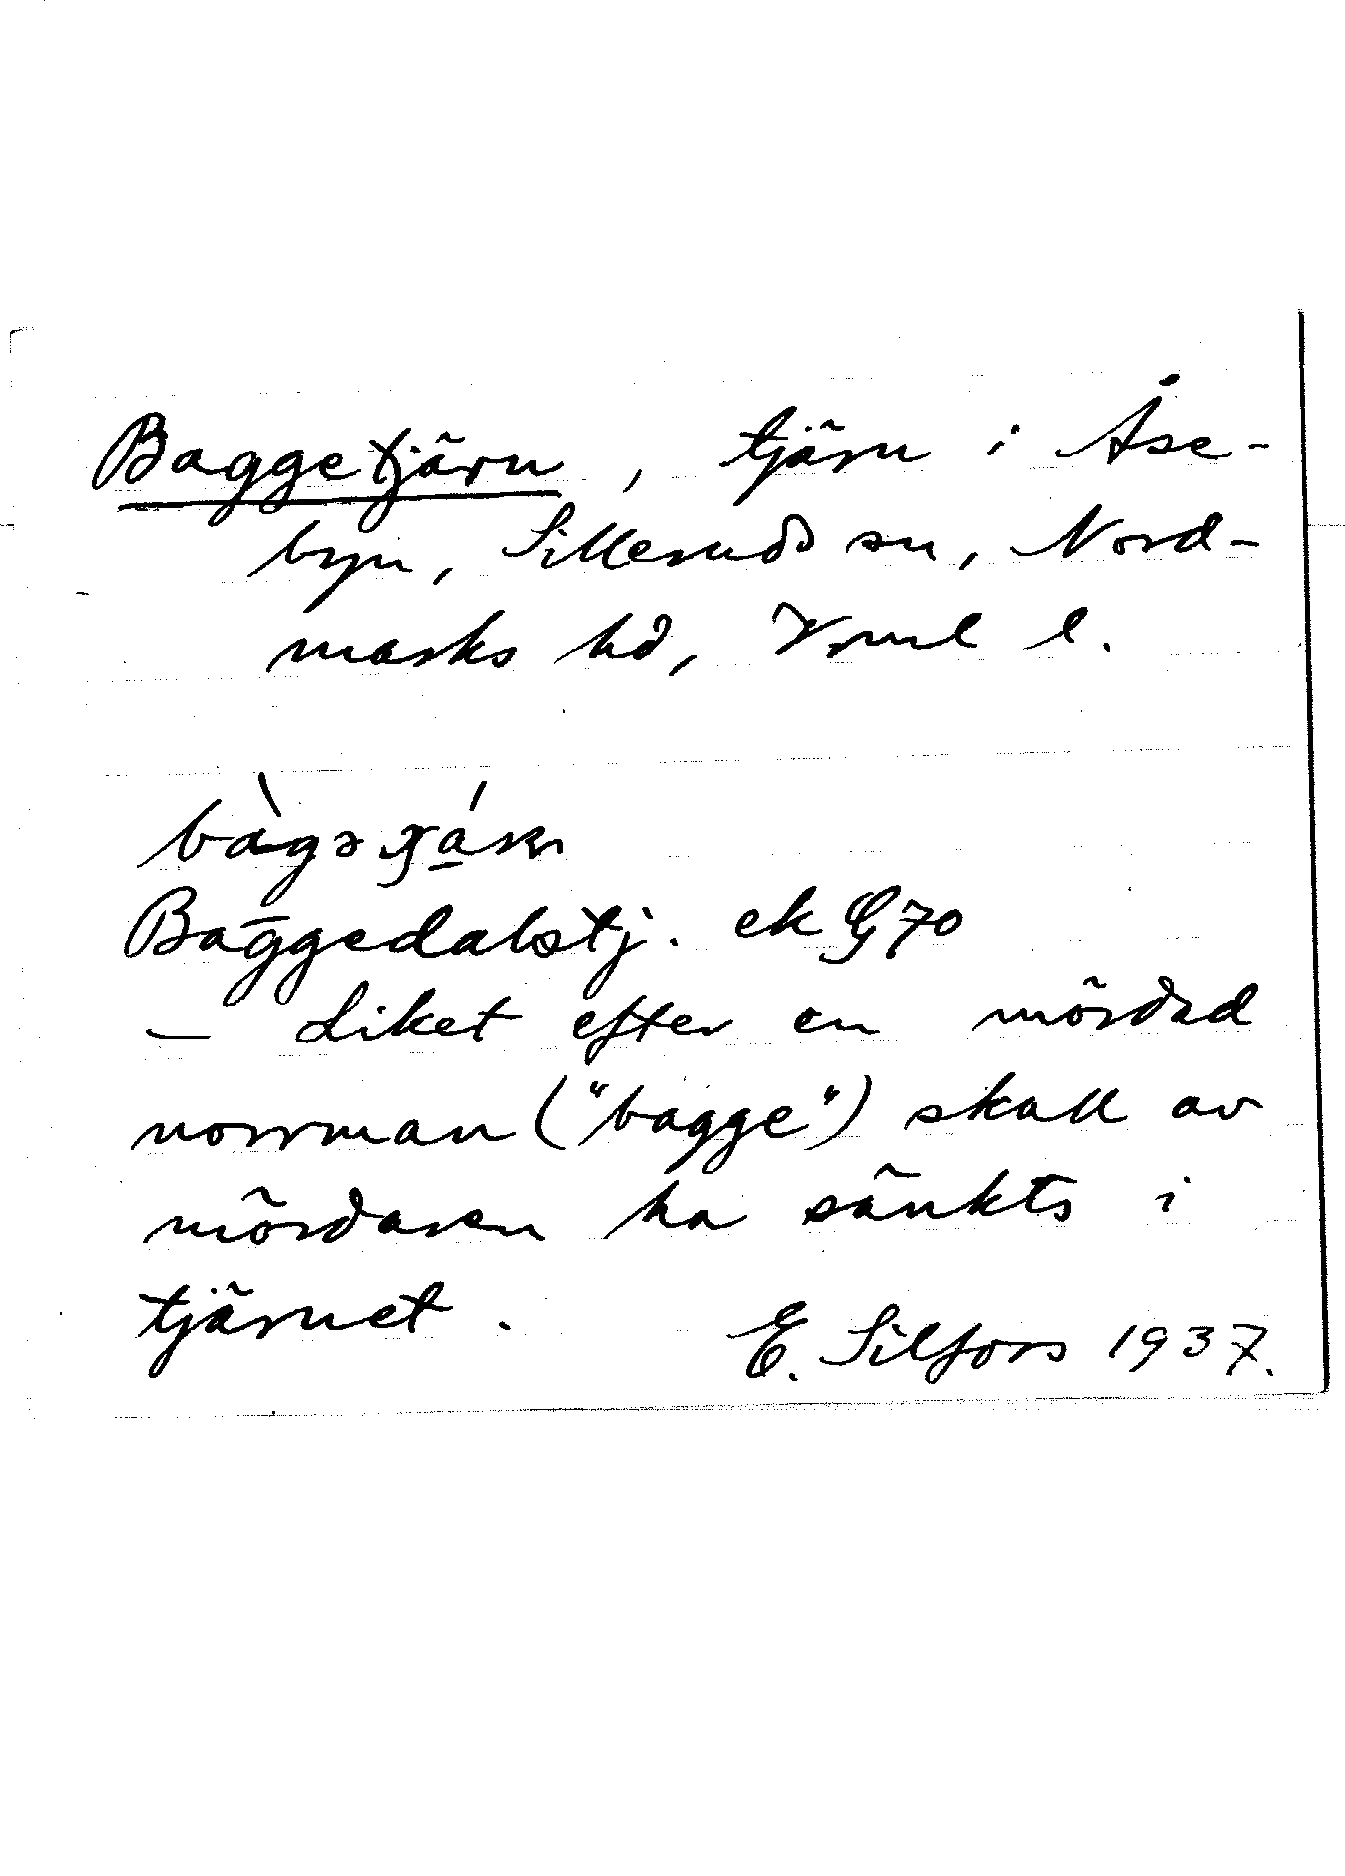 Baggetjärn, tjärn i Åse-
byn, Silleruds sn, Nord-
marks hd, Vrml l.
bàgə
Baggedalstj. ek G70
— Liket efter en mördad
norrman ("bagge") skall av
mördaren ha sänkts i
tjärnet.
E. Silfors 1937.